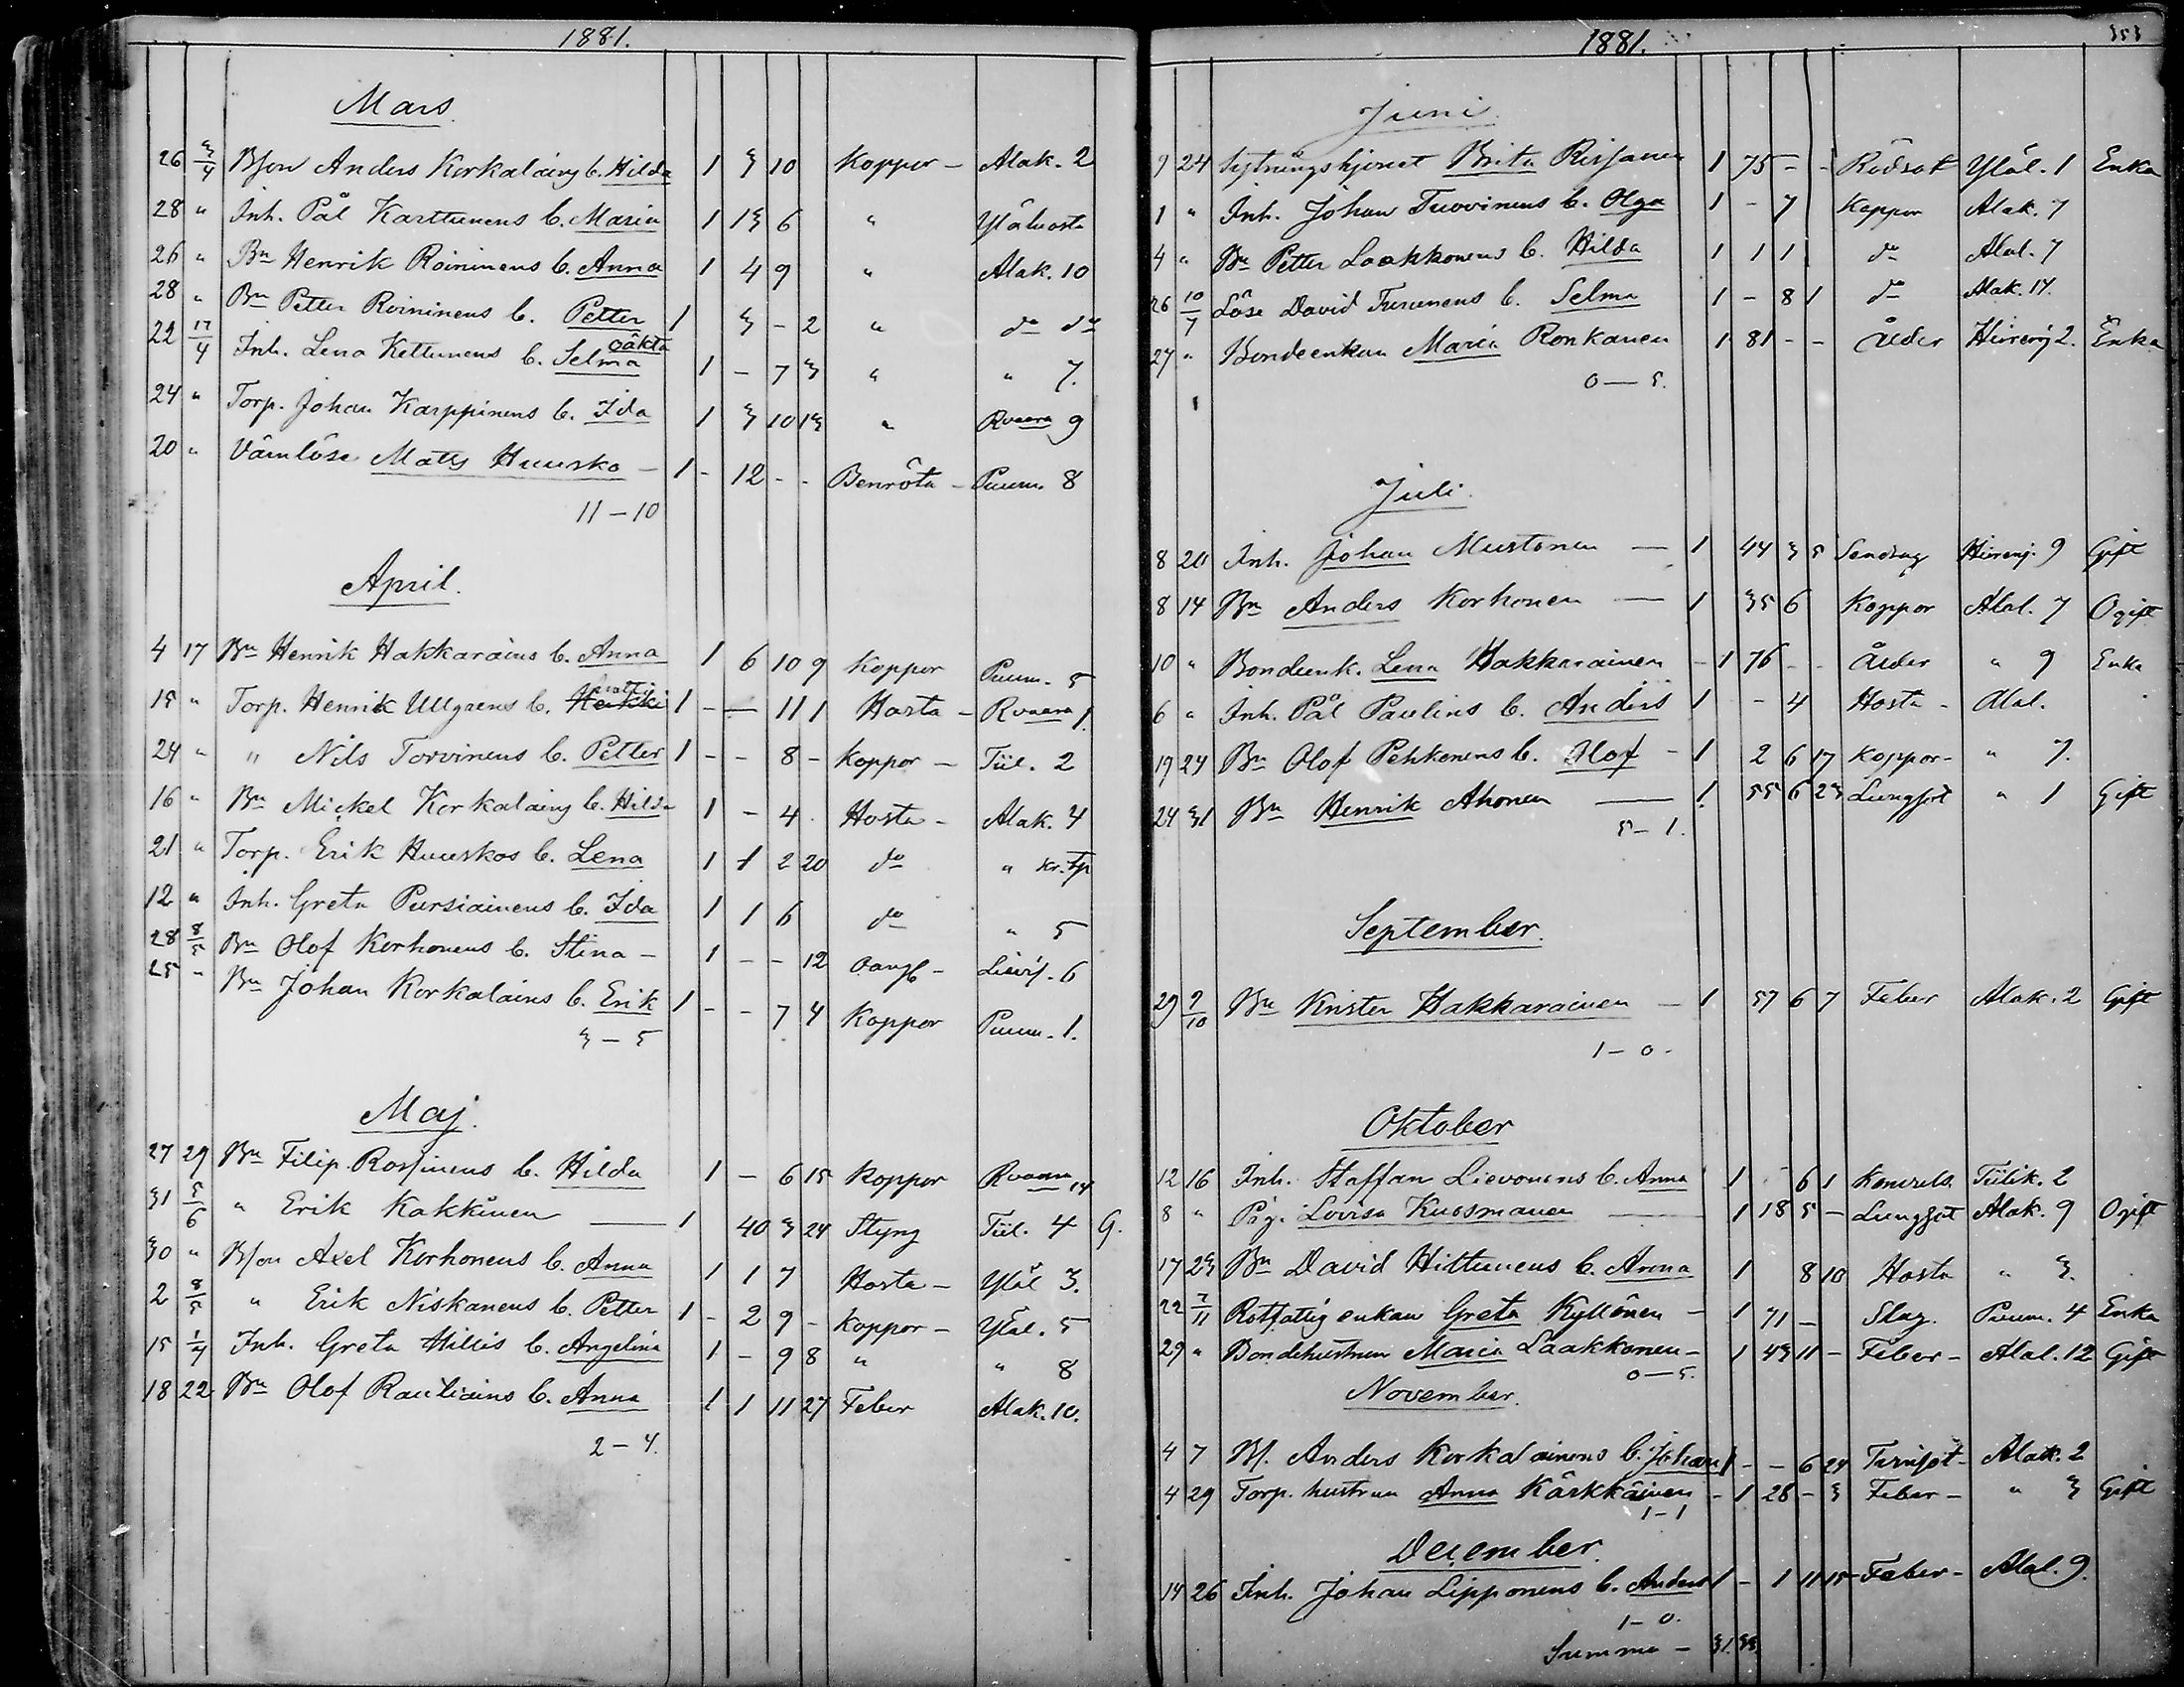 1881.
Mars.
26 3/4 Bson Anders Korkalains b. Hilda 1 3 10 Koppor - Alak. 2
28 " Inh. Pål Karttunens b. Maria 1 13 6 " Yläluosta
26 " Bn Henrik Roininens b. Anna 1 4 9 " Alak. 10
28 " Bn Petter Roininens b. Petter 1 3 - 2 " do do
22 17/4 Inh. Lena Kettunens b. Selma oäkta 1 - 7 3 " " 7.
24 " Torp. Johan Karppinens b. Ida 1 3 10 13 " Rvaara 9
20 " Värnlöse Matts Huusko - 1 - 12 - - Benröta - Puum. 8
11 - 10
April.
4 17 Bn Henrik Hakkarains b. Anna 1 6 10 9 Koppor Puum. 5
15 " Torp. Henrik Ullgrens b. Heikki 1 - - 11 1 Hosta - Rvaara 1.
24 " " Nils Torvinens b. Petter 1 - - 8 - Koppor - Tiil. 2
16 " Bn Mickel Korkalains b. Hilda 1 - 4 Hosta - Alak. 4
21 " Torp. Erik Huuskos b. Lena 1 1 2 20 do " kr. tp
12 " Inh. Greta Pursiainens b. Ida 1 1 6 do " 5
28 8/5 Bn Olof Korhonens b. Stina - 1 - - 12 Liävj. 6
25 " Bn Johan Korkalains b. Erik 1 - - 7 4 Koppor Puum. 1.
3 - 5
Maj.
27 29 Bn Filip Rossinens b. Hilda 1 - 6 15 Koppor Rvaara 14
31 5/6 " Erik Kakkinen 1 40 3 24 Styng Tiil. 4 G.
30 " Bson Axel Korhonens b. Anna 1 1 7 Hosta - Yläl 3.
2 8/5 " Erik Niskanens b. Petter 1 - 2 9 - Koppor - Yläl. 5
15 1/4 Inh. Greta Hillis b. Angelina 1 - 9 8 " " 8
18 22 Bn Olof Rautiains b. Anna 1 1 11 27 Feber Alak. 10.
2 - 4.
1881.
Juni.
9 24 Sytningshjonet Brita Rissanen 1 75 - - Rödsot Yläl. 1 Enka
1 " Inh. Johan Tuovinens b. Olga 1 - 7 Koppor Alak. 7
4 " Bn Petter Laakkonens b. Hilda 1 1 1 do Alal. 7
26 10/7 Löse David Turunens b. Selma 1 - 8 1 do Alak. 14.
27 " Bondeenkan Maria Ronkanen 1 81 - - Ålder Hirvenj 2. Enka
0 - 5.
Juli.
8 20 Inh. Johan Mustonen - 1 44 3 5 Hirvenj. 9 Gift
8 14 Bn Anders Korhonen - 1 35 6 Koppor Alal. 7 Ogift
10 " Bondeenk. Lena Hakkarainen - 1 76 - - Ålder " 9 Enka
6 " Inh. Pål Paulins b. Anders 1 - 4 Hosta - Alal.
19 24 Bn Olof Pehkonens b. Olof - 1 2 6 17 Koppor - " 7.
24 31 Bn Henrik Ahonen - 1 55 6 23 Lungsot " 1 Gift
5 - 1.
September.
29 9/10 Bn Krister Hakkarainen - 1 57 6 7 Feber Alak. 2 Gift
1 - 0 -
Oktober
12 16 Inh. Staffan Lievonens b. Anna 1 - 6 1 Konvuls. Tiilik. 2
8 " Pig. Lovisa Kuosmanen - 1 18 5 - Lungsot Alak. 9 Ogift
17 23 Bn David Hiltunens b. Anna 1 8 10 Hosta " 3.
22 7/11 Rotfattig enkan Greta Kyllönen - 1 71 - Slag. Puum. 4 Enka
29 " Bondehustrun Maria Laakkonen - 1 43 11 - Feber - Alal. 12 Gift
0 - 5.
November.
4 7 Bs. Anders Korkalainens b. Johan 1 - - 6 24 Alak. 2
4 29 Torp. hustrun Anna Kärkkäinen - 1 28 - 3 Feber - " 3 Gift
1 - 1
December.
14 26 Inh. Johan Lipponens b. Anders 1 - 1 11 15 Feber - Alal. 9.
1 - 0.
Summa - 31. 33.